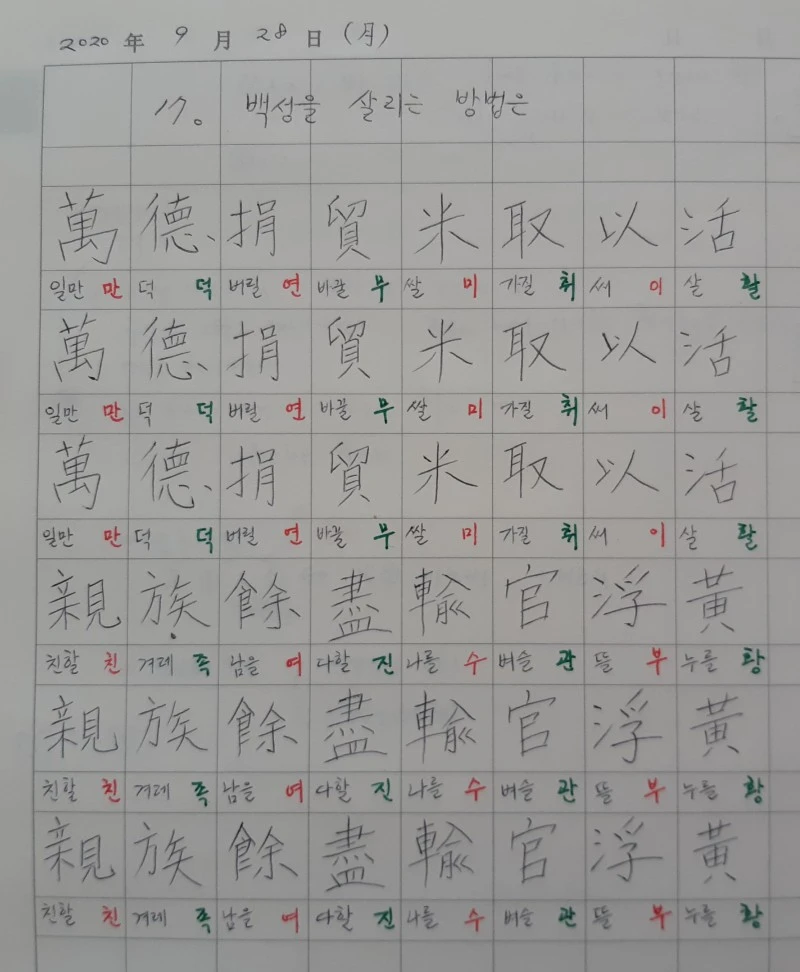 2020 年 9 月 28 日 (月)
17. 백성을 살리는 방법은
萬 德、 捐 貿 米 取 以 活
일만 만 덕 덕 버릴 연 바꿀 무 쌀 미 가질 취 써 이 살 활
萬 德、 捐 貿 米 取 以 活
일만 만 덕 덕 버릴 연 바꿀 무 쌀 미 가질 취 써 이 살 활
萬 德、 捐 貿 米 取 以 活
일만 만 덕 덕 버릴 연 바꿀 무 쌀 미 가질 취 써 이 살 활
親 族 餘 盡 輸 官 浮 黃
친할 친 겨레 족 남을 여 다할 진 나를 수 벼슬 관 뜰 부 누를 황
親 族 餘 盡 輸 官 浮 黃
친할 친 겨레 족 남을 여 다할 진 나를 수 벼슬 관 뜰 부 누를 황
親 族 餘 盡 輸 官 浮 黃
친할 친 겨레 족 남을 여 다할 진 나를 수 벼슬 관 뜰 부 누를 황